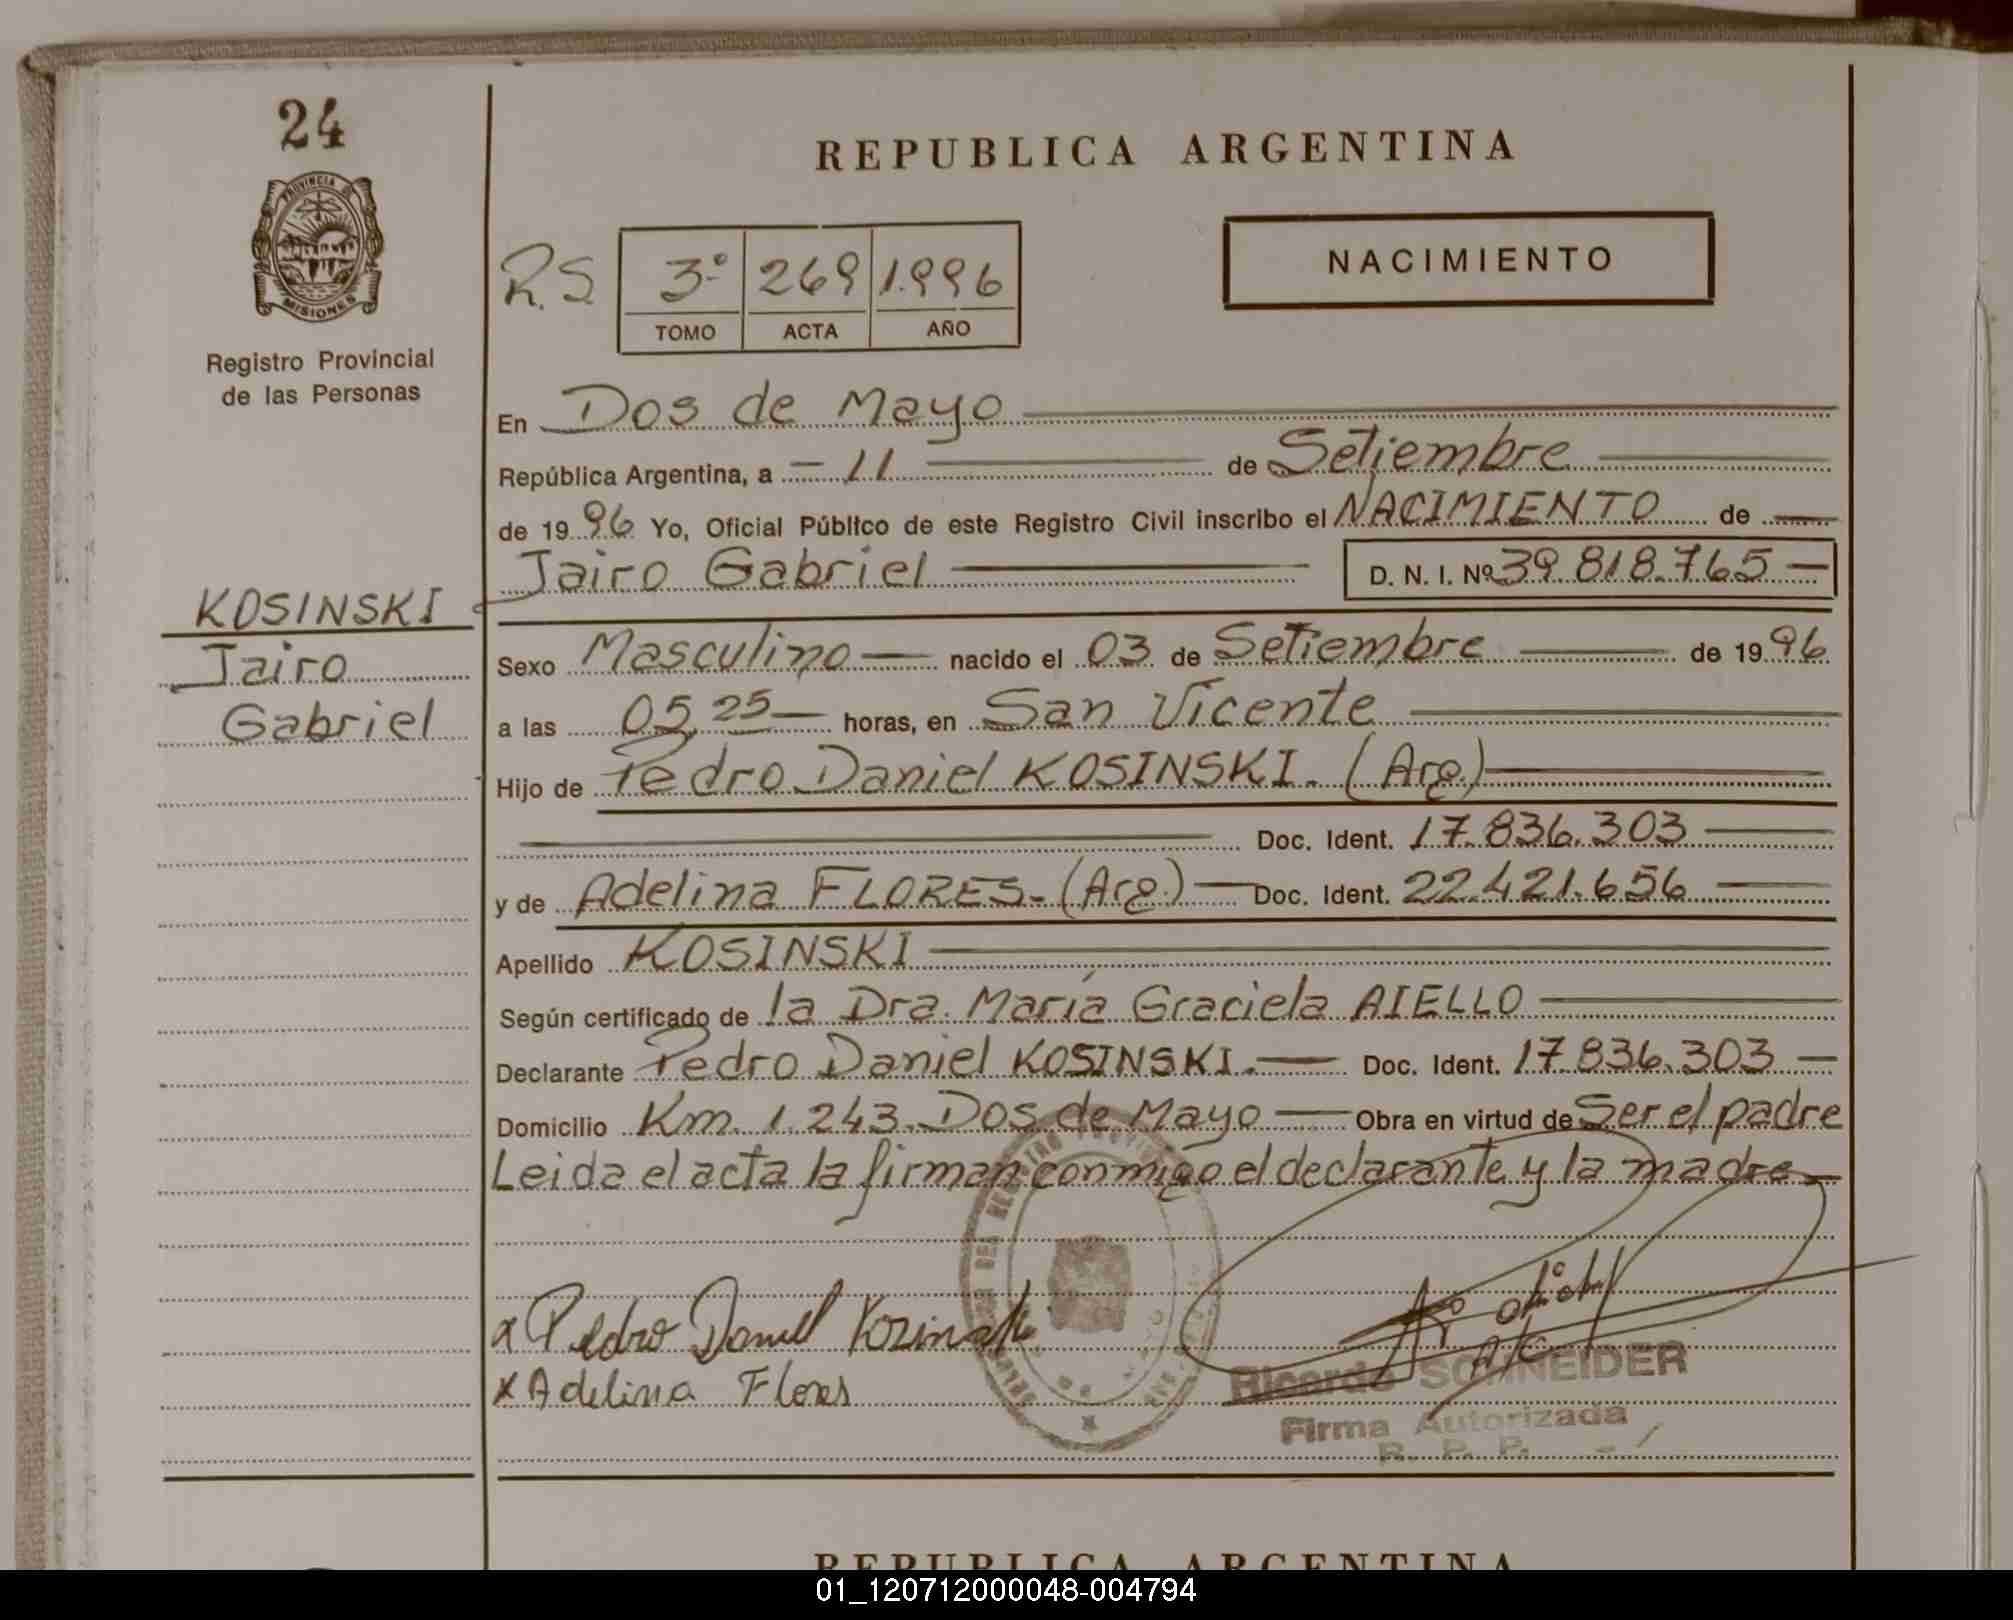 24
PROVINCIA DE
MISIONES
Registro Provincial
de las Personas
REPUBLICA ARGENTINA
R.S. 3º 269 1.996
TOMO ACTA AÑO
NACIMIENTO
En Dos de Mayo
República Argentina, a 11 de Setiembre
de 1996 Yo, Oficial Público de este Registro Civil inscribo el NACIMIENTO de
Jairo Gabriel D. N. I. Nº 39.818.765
KOSINSKI
Jairo
Gabriel
Sexo Masculino nacido el 03 de Setiembre de 1996
a las 05,25 horas, en San Vicente
Hijo de Pedro Daniel KOSINSKI. (Arg.)
Doc. Ident. 17.836.303
y de Adelina FLORES.- (Arg.) Doc. Ident. 22.421.656
Apellido KOSINSKI
Según certificado de la Dra. María Graciela AIELLO
Declarante Pedro Daniel KOSINSKI. Doc. Ident. 17.836.303
Domicilio Km. 1.243. Dos de Mayo Obra en virtud de Ser el padre
Leida el acta la firman conmigo el declarante y la madre
x Pedro Daniel Kosinski
x Adelina Flores
A/C
Ricardo SCHNEIDER
Firma Autorizada
R. P. P.
REPUBLICA ARGENTINA
01_120712000048-004794